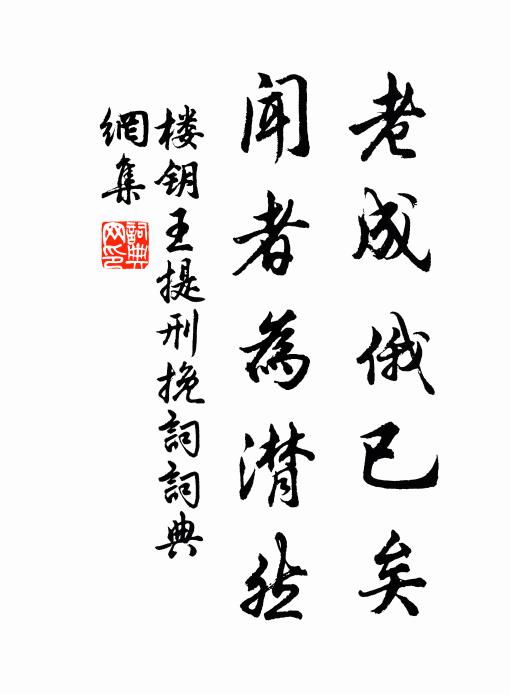 老成俄已矣
聞者為潸然
楼钥王提刑挽詞詞典
網集
詞典
网印